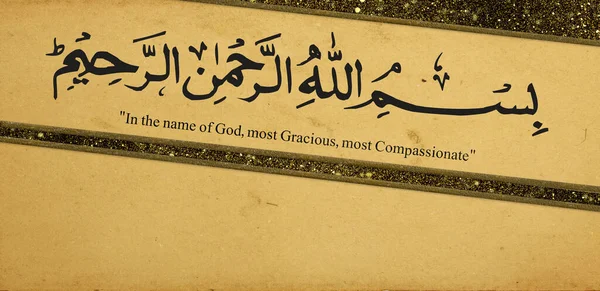 بِسْمِ اللَّهِ الرَّحْمَٰنِ الرَّحِيمِ
"In the name of God, most Gracious, most Compassionate"